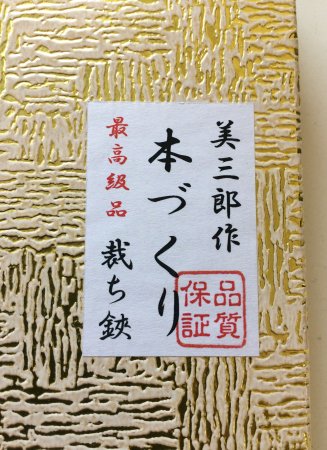 美三郎作
本づくり
最高級品
裁ち鋏
品質
保証